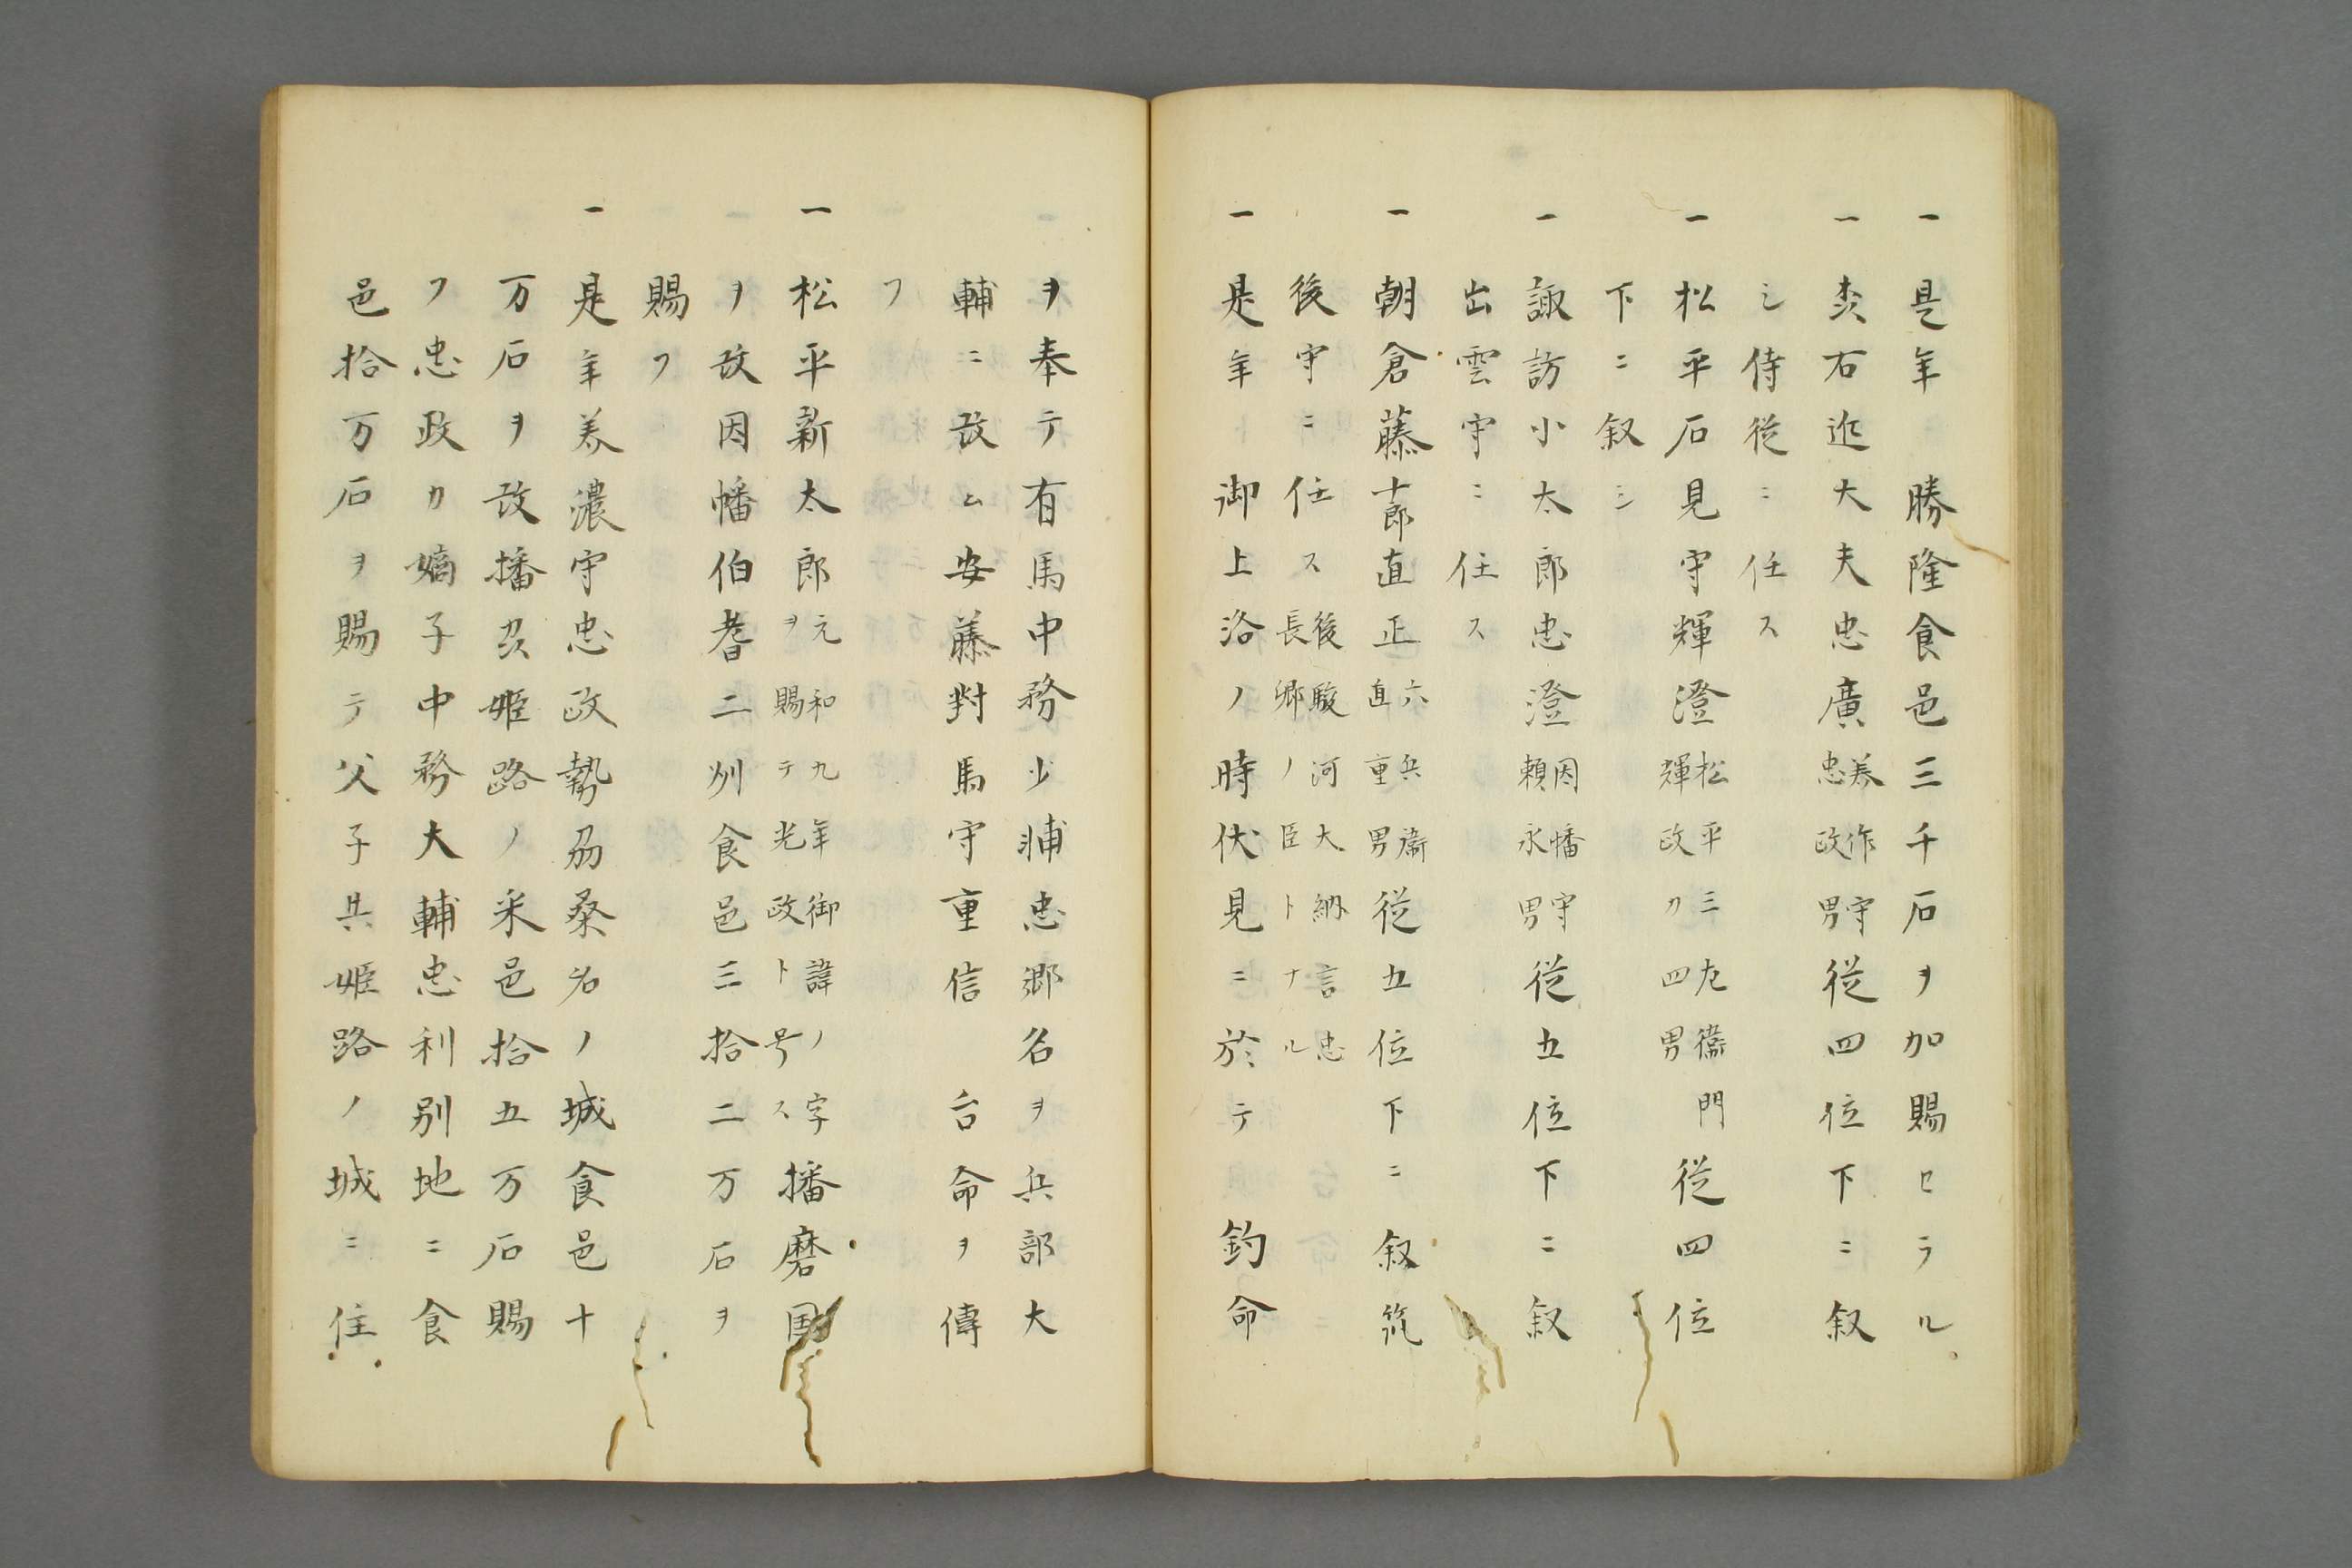 一是年　勝隆食邑三千石ヲ加賜セラル
一奥石近大夫忠廣美作守忠政男従四位下ニ叙
シ侍従ニ任ス
一松平石見守輝澄松平三左衛門輝政カ四男従四位
下ニ叙シ
一諏訪小太郎忠澄因幡守頼永男従五位下ニ叙
出雲守ニ任ス
一朝倉藤十郎直正六兵衛直重男従五位下ニ叙筑
後守ニ任ス後駿河大納言忠長卿ノ臣トナル
一是年ト御上洛ノ時伏見ニ於テ　釣命
ヲ奉テ有馬中務少輔忠郷名ヲ兵部大
輔ニ改ム安藤對馬守重信　台命ヲ傳
フ
一松平新太郎元和九年御諱ノ字ヲ賜テ光政ト号ス播磨国
ヲ改因幡伯耆二州食邑三拾二万石ヲ
賜フ
一是年美濃守忠政勢刕桑名ノ城食邑十
万石ヲ改播刕姫路ノ采邑拾五万石賜
フ忠政カ嫡子中務大輔忠利別地ニ食
邑拾万石ヲ賜テ父子共姫路ノ城ニ住